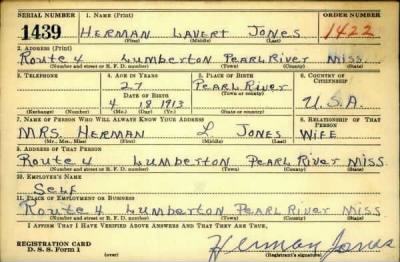 SERIAL NUMBER 1. NAME (Print) ORDER NUMBER
1439 HERMAN LAVERT JONES 1422
(First) (Middle) (Last)
2. ADDRESS (Print)
Route 4 Lumberton Pearl River Miss.
(Number and street or R. F. D. number) (Town) (County) (State)
3. TELEPHONE 4. AGE IN YEARS 5. PLACE OF BIRTH 6. COUNTRY OF CITIZENSHIP
27 Pearl River
DATE OF BIRTH (Town or county)
4 18 1913 U.S.A.
(Exchange) (Number) (Mo.) (Day) (Yr.) (State or country)
7. NAME OF PERSON WHO WILL ALWAYS KNOW YOUR ADDRESS 8. RELATIONSHIP OF THAT PERSON
MRS. HERMAN L JONES WIFE
(Mr., Mrs., Miss) (First) (Middle) (Last)
9. ADDRESS OF THAT PERSON
Route 4 Lumberton Pearl River Miss
(Number and street or R. F. D. number) (Town) (County) (State)
10. EMPLOYER'S NAME
Self
11. PLACE OF EMPLOYMENT OR BUSINESS
Route 4 Lumberton Pearl River Miss
(Number and street or R. F. D. number) (Town) (County) (State)
I AFFIRM THAT I HAVE VERIFIED ABOVE ANSWERS AND THAT THEY ARE TRUE.
REGISTRATION CARD
D. S. S. Form 1 (Registrant's signature)
Herman Jones